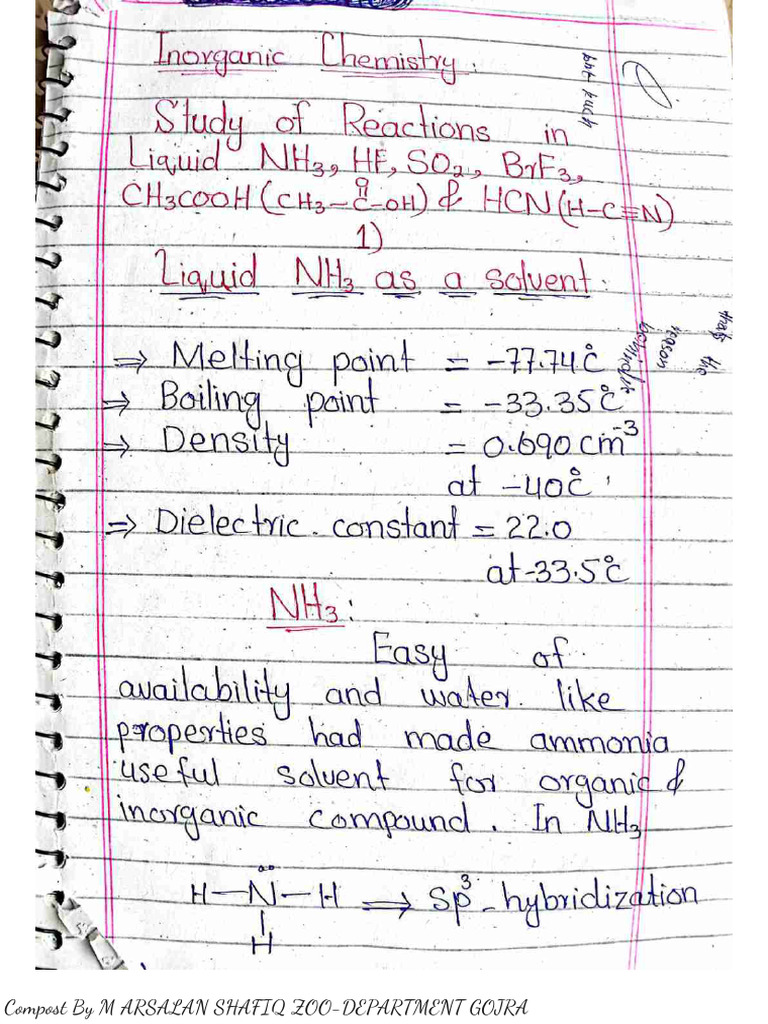 Inorganic Chemistry.
Study of Reactions in
Liquid NH3, HF, SO2, BrF3,
CH3COOH (CH3-C-OH) & HCN (H-C≡N)
O
1)
Liquid NH3 as a solvent:
⇒ Melting point = -77.74°C
⇒ Boiling point = -33.35°C
⇒ Density = 0.690 cm⁻³
at -40°C
⇒ Dielectric constant = 22.0
at -33.5°C
NH3:
Easy of
availability and water like
properties had made ammonia
useful solvent for organic &
inorganic compound. In NH3
H-N-H ⇒ Sp³-hybridization
H
but such
that the
reason
Compost By M ARSALAN SHAFIQ ZOO-DEPARTMENT GOJRA